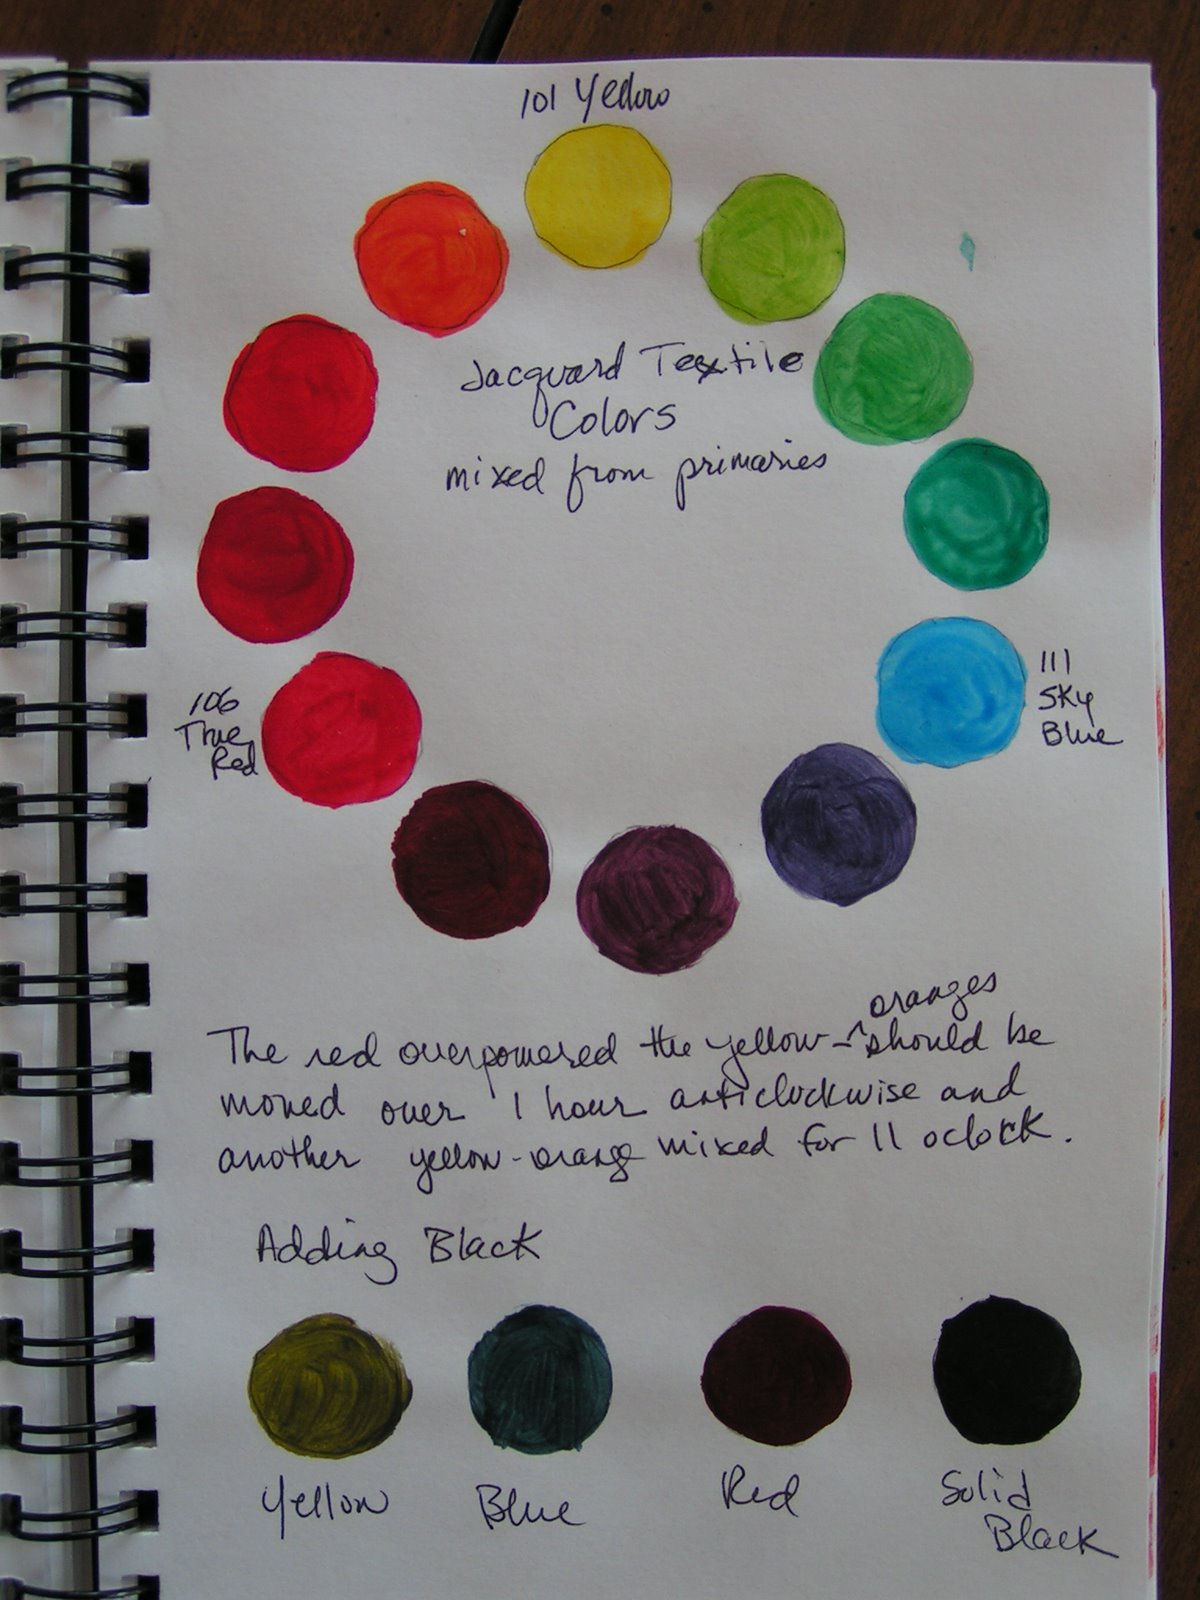 101 Yellow
Jacquard Textile
Colors
mixed from primaries
111
Sky
Blue
106
True
Red
oranges
The red overpowered the yellow - ^ should be
moved over 1 hour anticlockwise and
another yellow-orange mixed for 11 oclock.
Adding Black
Yellow
Blue
Red
Solid
Black